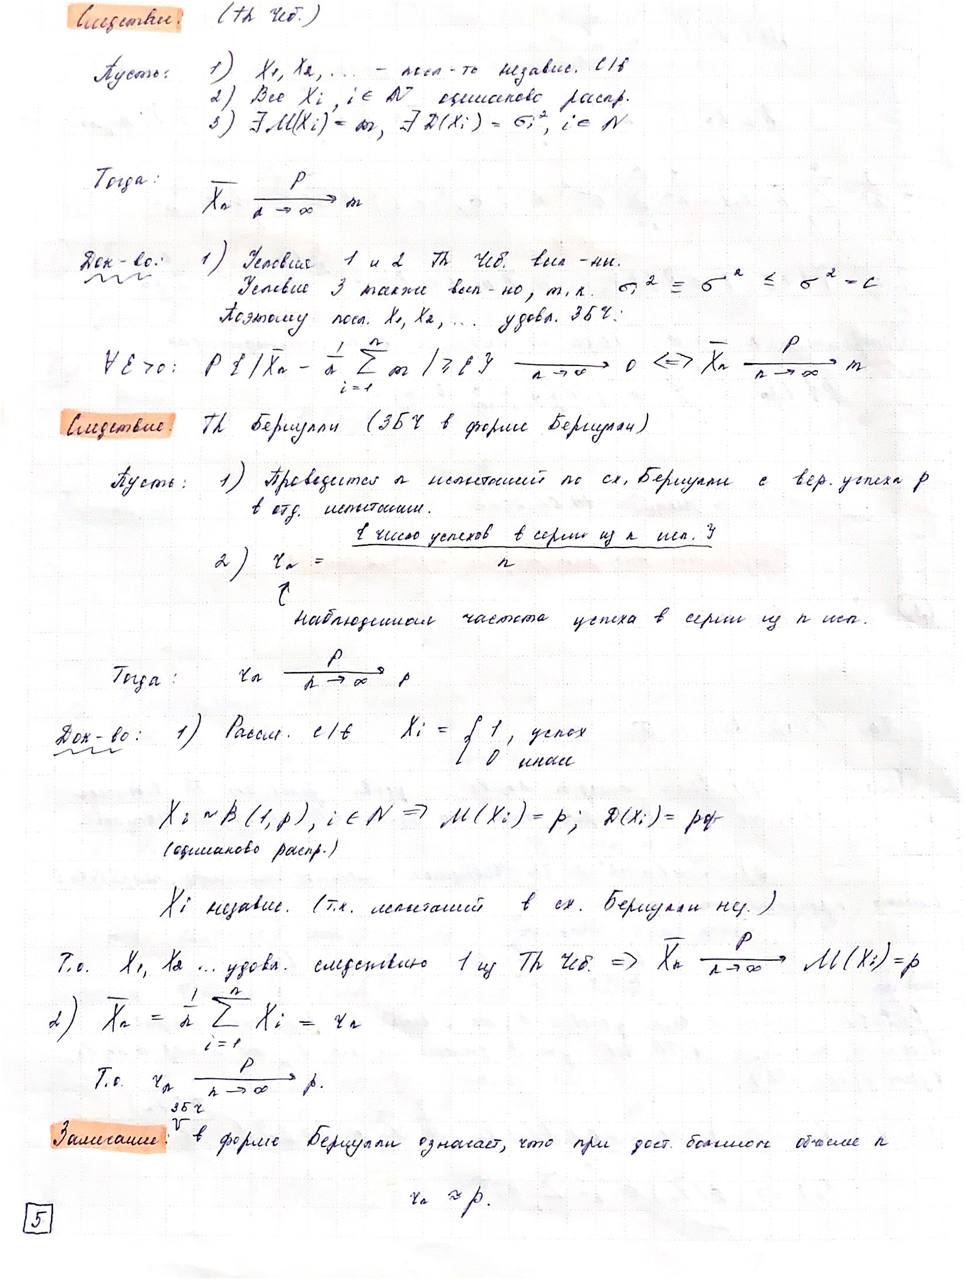 Следствие: (Th Чеб.)
Пусть: 1) X1, X2, ... – посл-ть независ. с/в
2) Все Xi, i ∈ N одинаково распр.
3) ∃ M(Xi) = m, ∃ D(Xi) = σi², i ∈ N
Тогда: X̄n —P→ (n→∞) m
Док-во: 1) Условие 1 и 2 Th Чеб. вып-ны.
Условие 3 также вып-но, т.к. σi² ≡ σ² ≤ σ² = c
Поэтому посл. X1, X2, ... удовл. ЗБЧ:
∀ε>0: P{|X̄n − 1/n ∑(i=1..n) m| ≥ ε} —→ (n→∞) 0 <=> X̄n —P→ (n→∞) m
Следствие: Th Бернулли (ЗБЧ в форме Бернулли)
Пусть: 1) Проводится n испытаний по сх. Бернулли с вер. успеха p
в отд. испытании.
2) rn = {число успехов в серии из n исп.} / n
↑
наблюденная частота успеха в серии из n исп.
Тогда: rn —P→ (n→∞) p
Док-во: 1) Рассм. с/в Xi = { 1, успех
0 иначе
Xi ~ B(1,p), i ∈ N => M(Xi) = p; D(Xi) = pq
(одинаково распр.)
Xi независ. (т.к. испытаний в сх. Бернулли нез.)
Т.о. X1, X2 ... удовл. следствию 1 из Th Чеб. => X̄n —P→ (n→∞) M(Xi) = p
2) X̄n = 1/n ∑(i=1..n) Xi = rn
Т.о. rn —P→ (n→∞) p.
ЗБЧ
Замечание: в форме Бернулли означает, что при дост. большом объеме n
rn ≈ p.
5